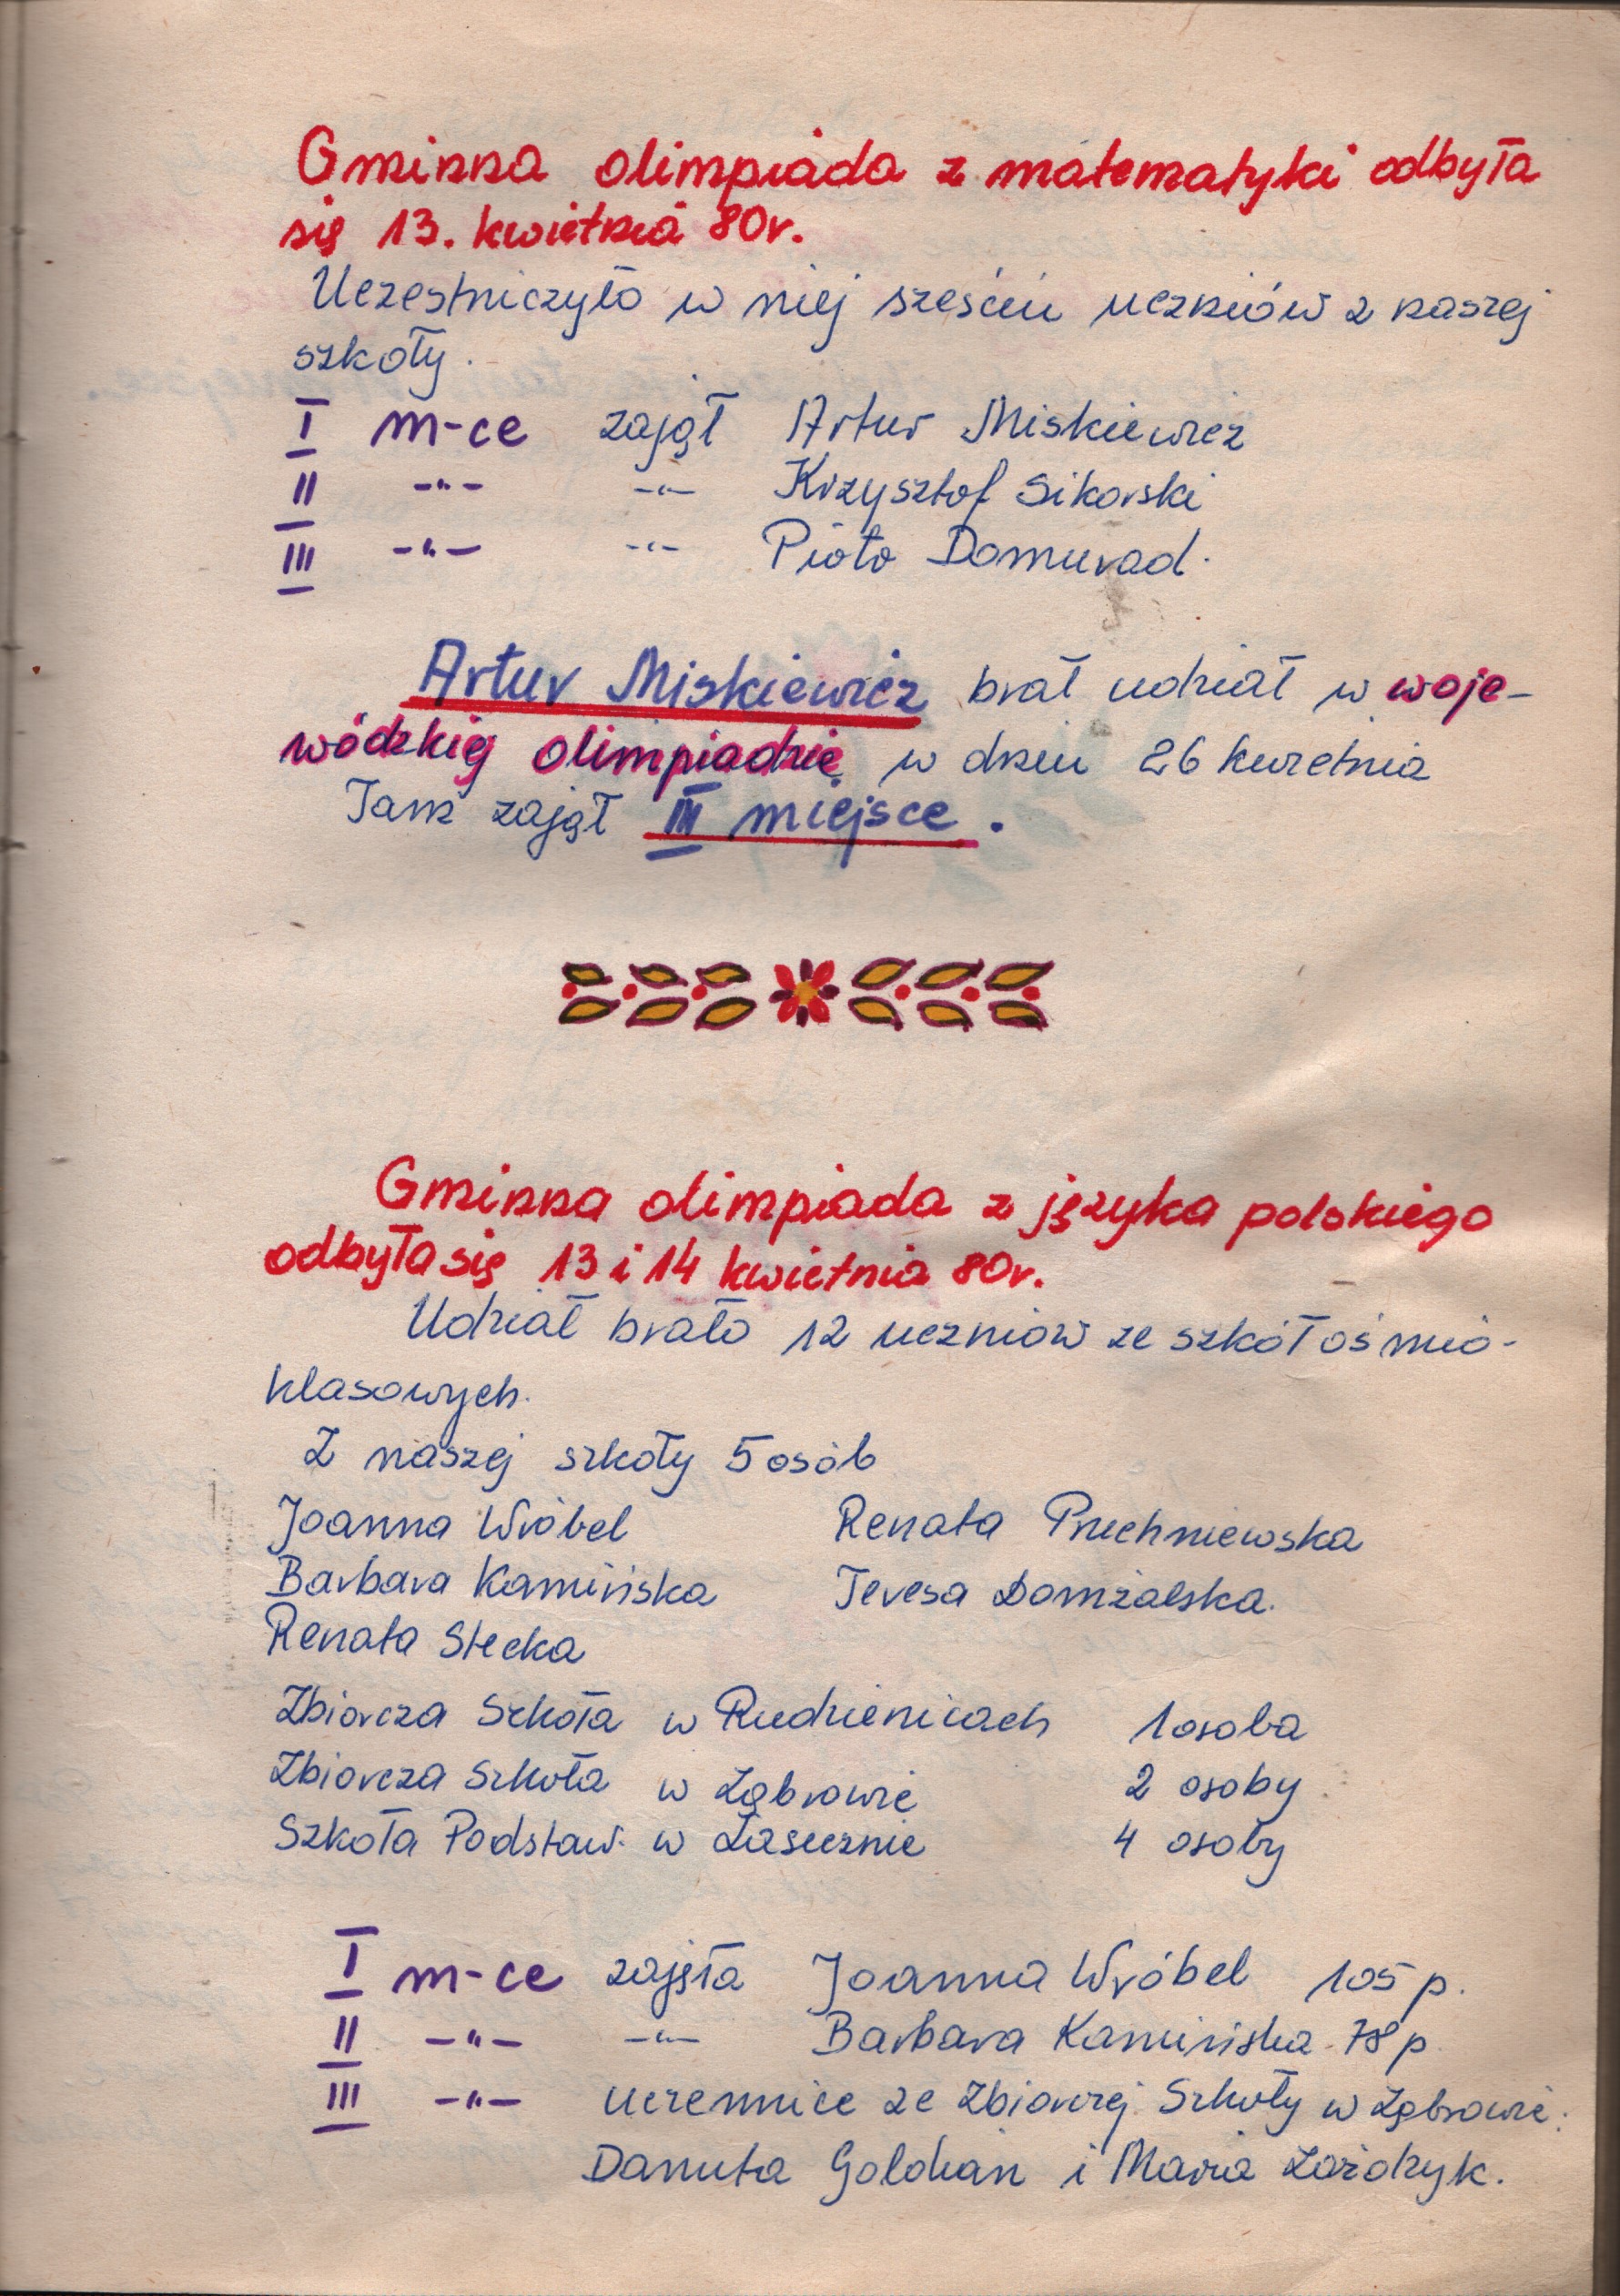 Gminna olimpiada z matematyki odbyła
się 13. kwietnia 80r.
Uczestniczyło w niej sześciu uczniów z naszej
szkoły.
I m-ce zajął Artur Miskiewicz
II -"- -"- Krzysztof Sikorski
III -"- -"- Piotr Domurad.
Artur Miskiewicz brał udział w woje-
wódzkiej olimpiadzie w dniu 26 kwietnia
Tam zajął III miejsce.
Gminna olimpiada z języka polskiego
odbyła się 13 i 14 kwietnia 80r.
Udział brało 12 uczniów ze szkół ośmio-
klasowych.
Z naszej szkoły 5 osób
Joanna Wróbel Renata Pruchniewska
Barbara Kamińska Teresa Domżalska.
Renata Stecka
Zbiorcza Szkoła w Rudzienicach 1 osoba
Zbiorcza Szkoła w Ząbrowie 2 osoby
Szkoła Podstaw. w Lasecznie 4 osoby
I m-ce zajęła Joanna Wróbel 105 p.
II -"- -"- Barbara Kamińska 78 p
III -"- uczennice ze Zbiorczej Szkoły w Ząbrowie:
Danuta i Maria